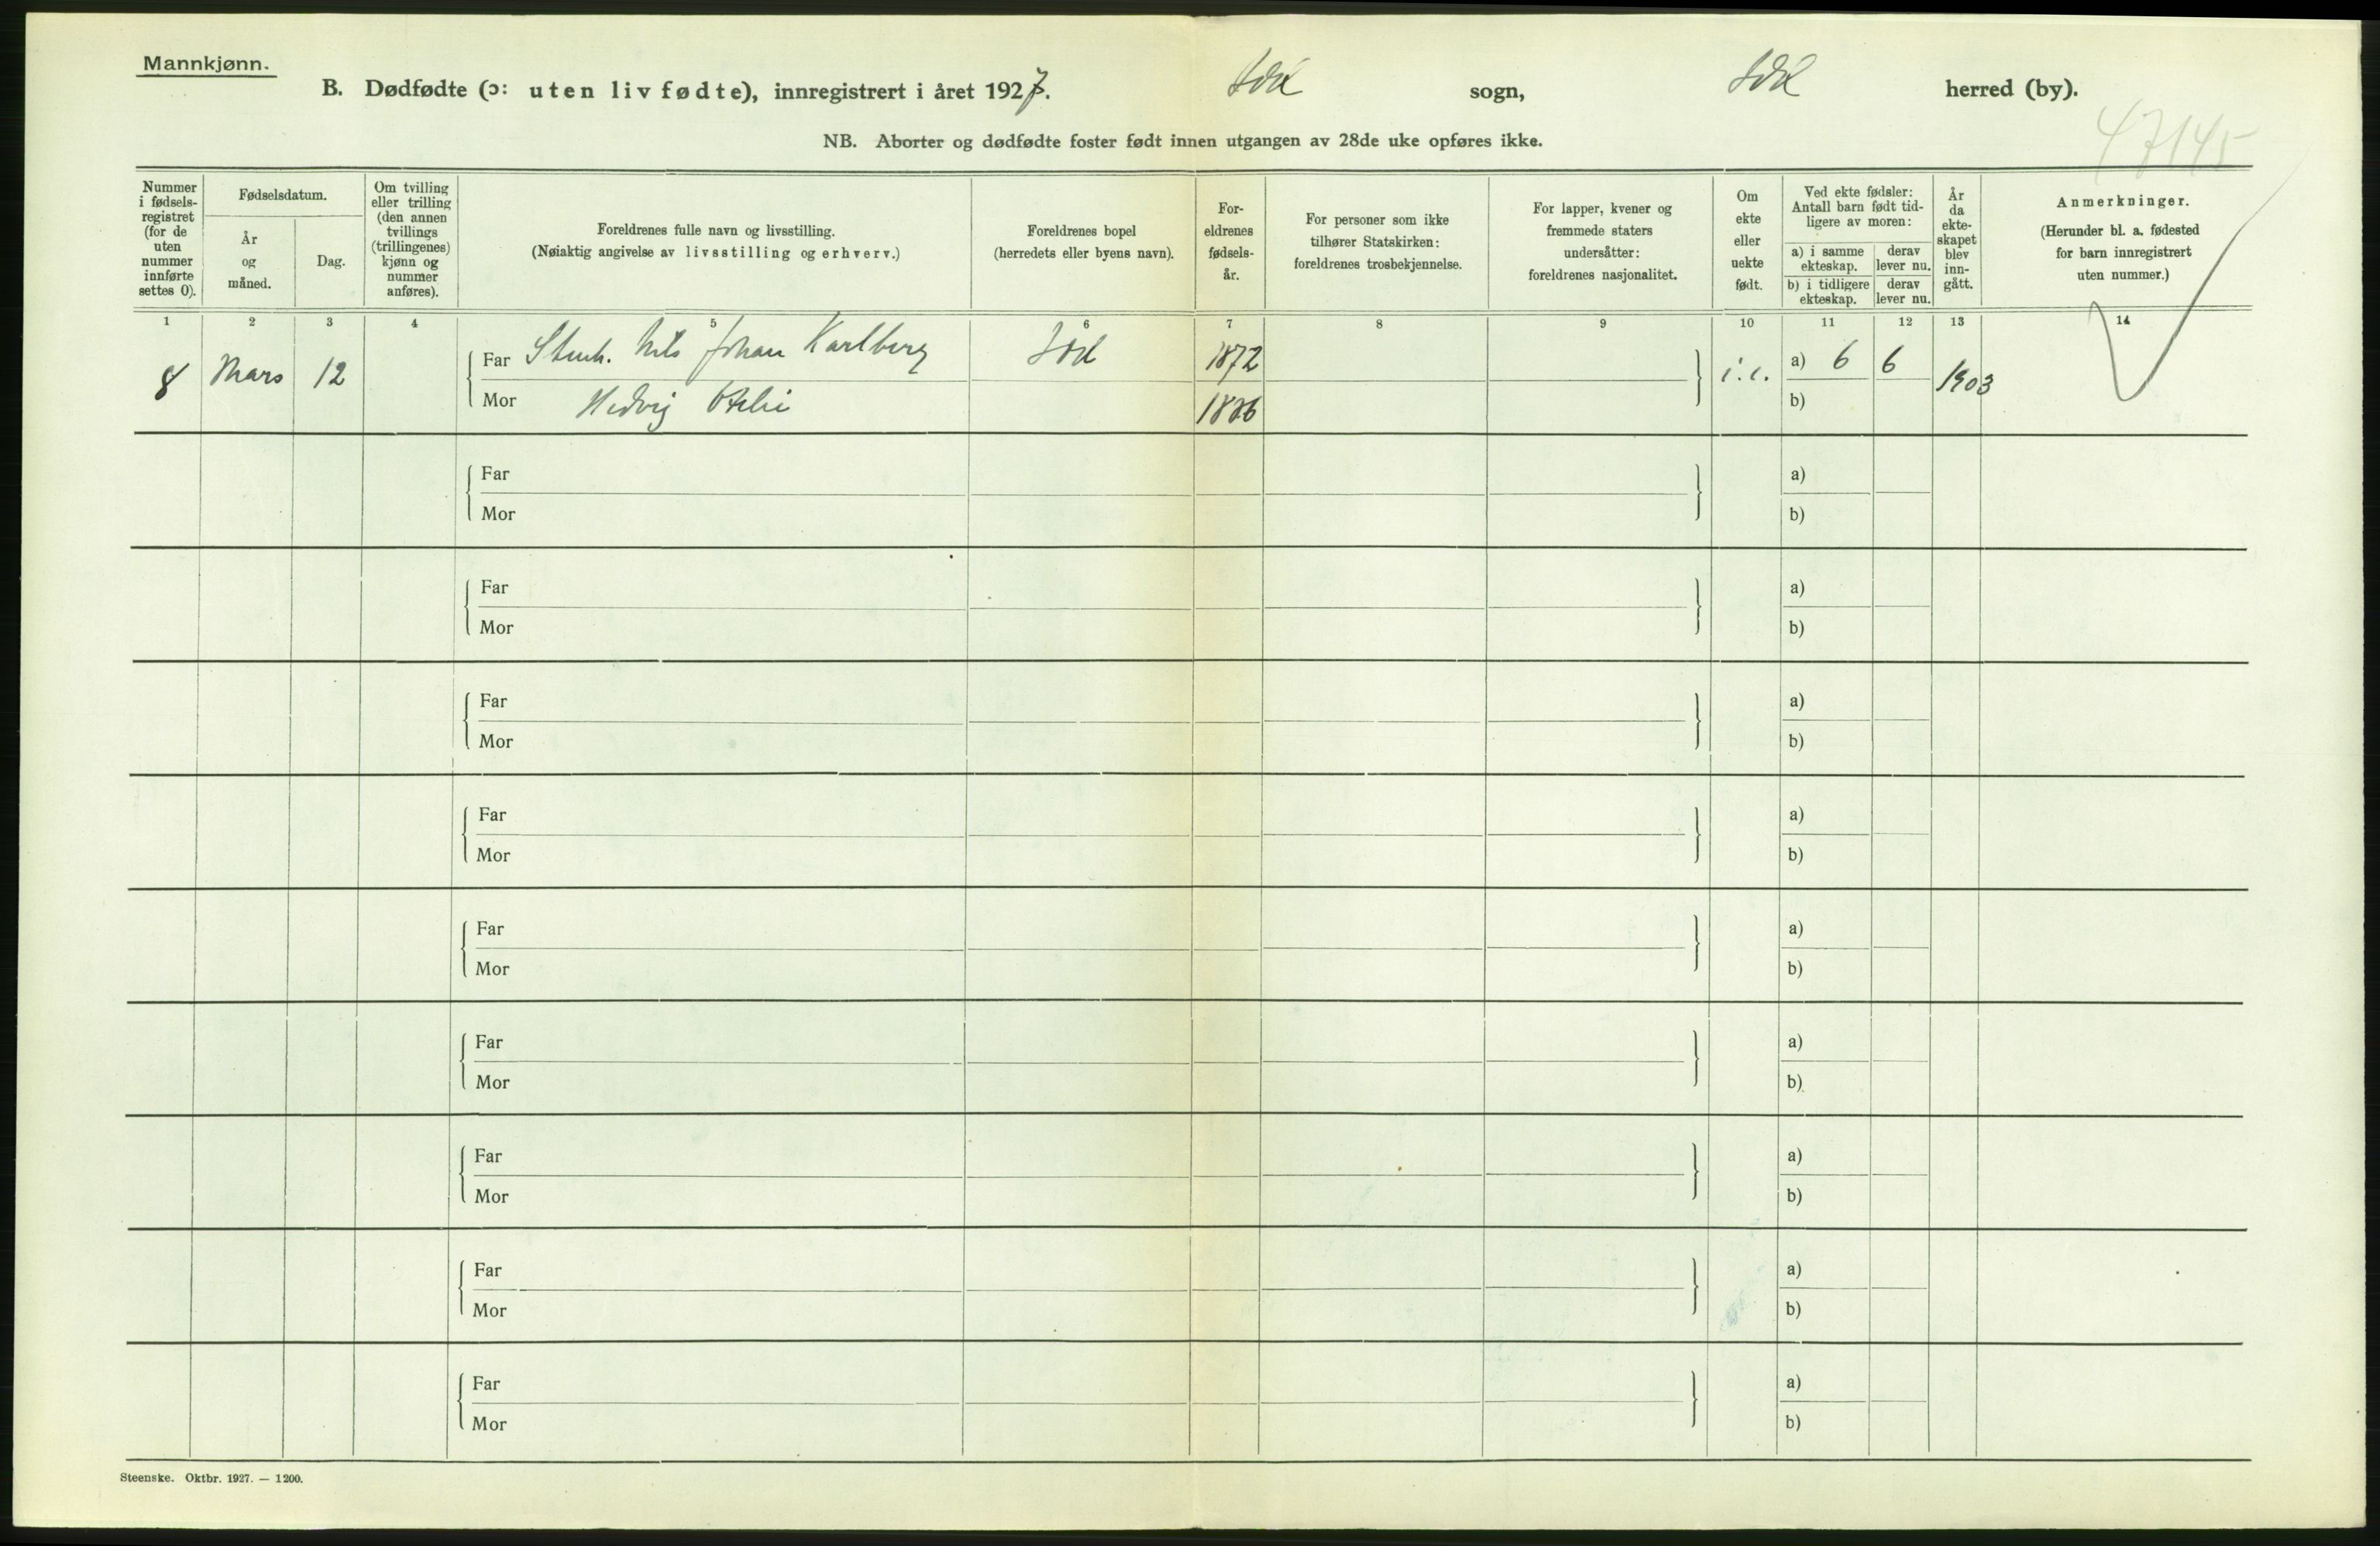 Mannkjønn.
B. Dødfødte (ɔ: uten liv fødte), innregistrert i året 1927. Idd sogn, Idd herred (by).
NB. Aborter og dødfødte foster født innen utgangen av 28de uke opføres ikke.
47145
Nummer i fødsels-registret (for de uten nummer innførte settes 0).
Fødselsdatum.
År og måned.
Dag.
Om tvilling eller trilling (den annen tvillings (trillingenes) kjønn og nummer anføres).
Foreldrenes fulle navn og livsstilling.
(Nøiaktig angivelse av livsstilling og erhverv.)
Foreldrenes bopel
(herredets eller byens navn).
For-eldrenes fødsels-år.
For personer som ikke tilhører Statskirken: foreldrenes trosbekjennelse.
For lapper, kvener og fremmede staters undersåtter: foreldrenes nasjonalitet.
Om ekte eller uekte født.
Ved ekte fødsler: Antall barn født tid-ligere av moren:
a) i samme ekteskap.
derav lever nu.
b) i tidligere ekteskap.
derav lever nu.
År da ekte-skapet blev inn-gått.
Anmerkninger.
(Herunder bl. a. fødested for barn innregistrert uten nummer.)
1 2 3 4 5 6 7 8 9 10 11 12 13 14
8 Mars 12 Far Stenh. Nils Johan Karlberg Idd 1872 a) 6 6 1903
Mor Hedvig 1886 b)
Far a)
Mor b)
Far a)
Mor b)
Far a)
Mor b)
Far a)
Mor b)
Far a)
Mor b)
Far a)
Mor b)
Far a)
Mor b)
Far a)
Mor b)
Far a)
Mor b)
Steenske. Oktbr. 1927. — 1200.